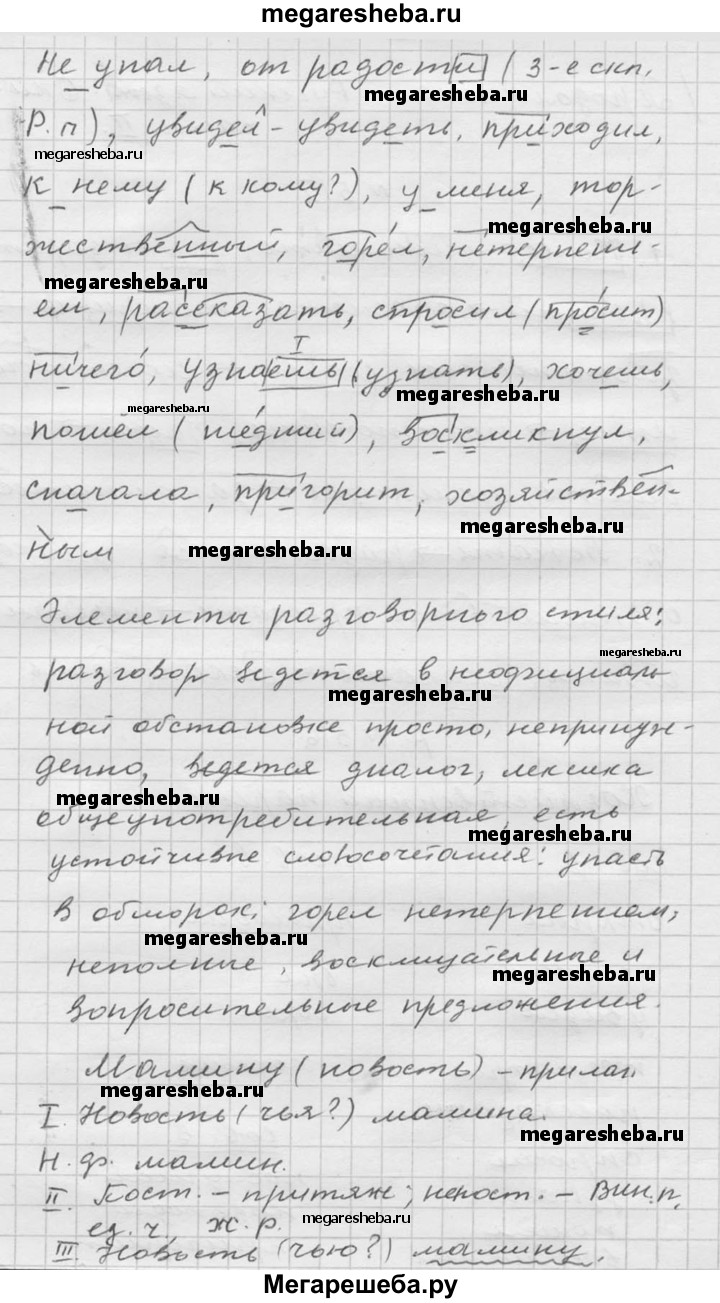 megaresheba.ru
Не упал, от радости (3-е скл.
megaresheba.ru
Р.п), увидел - увидеть, приходил,
megaresheba.ru
к нему (к кому?), у меня, тор-
megaresheba.ru
жественный, горел, нетерпени-
megaresheba.ru
ем, рассказать, спросил (просит)
I
ничего, узнаешь (узнать), хочешь,
megaresheba.ru
megaresheba.ru
пошёл (шедший), воскликнул,
сначала, пригорит, хозяйствен-
megaresheba.ru
ным
megaresheba.ru
Элементы разговорного стиля:
megaresheba.ru
разговор ведется в неофициаль
megaresheba.ru
ной обстановке просто, непринуж-
денно, ведется диалог, лексика
megaresheba.ru
общеупотребительная, есть
megaresheba.ru
устойчивые словосочетания: упасть
в обморок; горел нетерпением;
megaresheba.ru
неполные, восклицательные и
megaresheba.ru
вопросительные предложения.
Мамину (новость) - прилаг.
megaresheba.ru
I. Новость (чья?) мамина.
megaresheba.ru
Н.ф. мамин.
II. Пост. - притяж; непост. - Вин.п,
ед.ч, ж.р.
megaresheba.ru
III. Новость (чью?) мамину.
Мегарешеба.ру